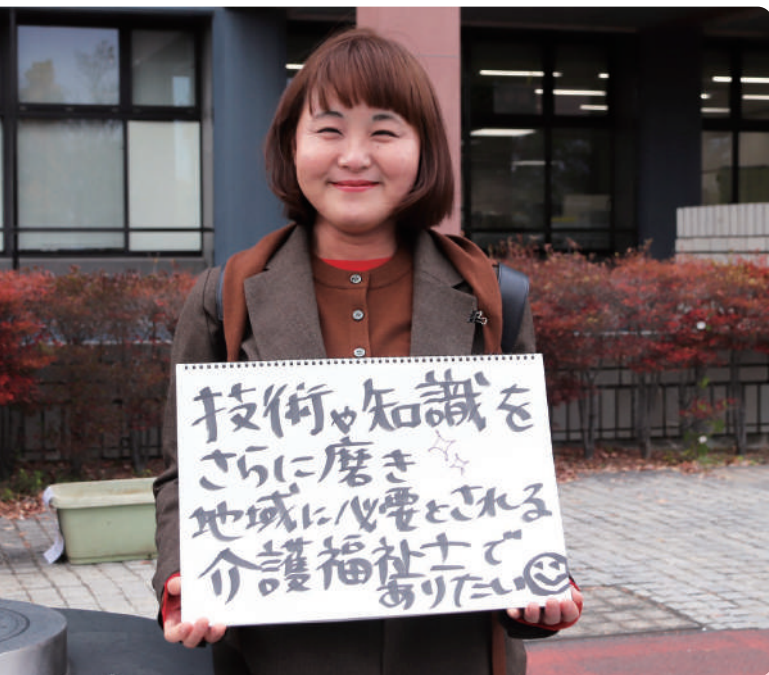 技術や知識を
さらに磨き
地域に必要とされる
介護福祉士で
ありたい